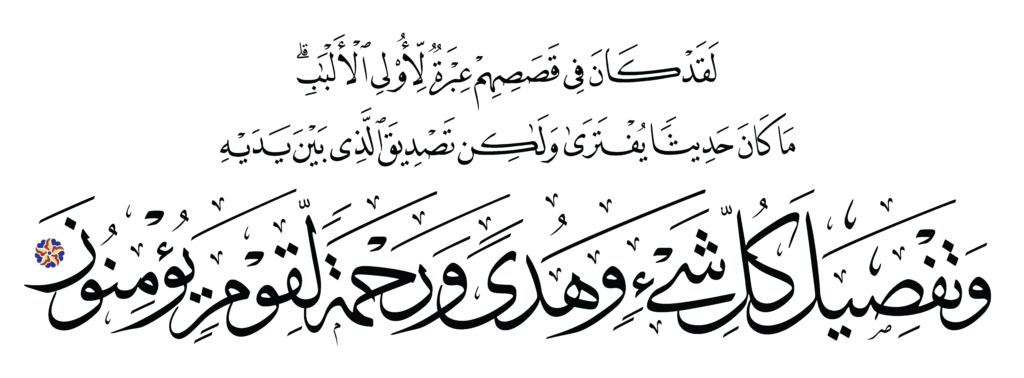 لَقَدْ كَانَ فِي قَصَصِهِمْ عِبْرَةٌ لِّأُوْلِي ٱلْأَلْبَٰبِۗ
مَا كَانَ حَدِيثًا يُفْتَرَىٰ وَلَٰكِن تَصْدِيقَ ٱلَّذِي بَيْنَ يَدَيْهِ
وَتَفْصِيلَ كُلِّ شَيْءٍ وَهُدًى وَرَحْمَةً لِّقَوْمٍ يُؤْمِنُونَ